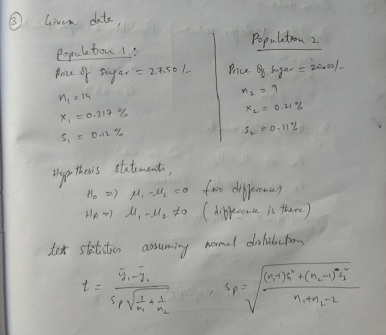 ③ Given data,
Population 1 :
Price of sugar = 27.50/-
n₁ = 14
x₁ = 0.317 %
S₁ = 0.12 %
Population 2
Price of sugar = 20.00/-
n₂ = 9
x₂ = 0.21 %
S₂ = 0.11 %
Hypothesis statements,
H₀ => μ₁ - μ₂ = 0 (no difference)
Hₐ => μ₁ - μ₂ ≠ 0 (difference is there)
test statistics assuming normal distribution
t = (ȳ₁ - ȳ₂) / (Sp √(1/n₁ + 1/n₂)) , Sp = √(((n₁-1)S₁² + (n₂-1)S₂²) / (n₁+n₂-2))